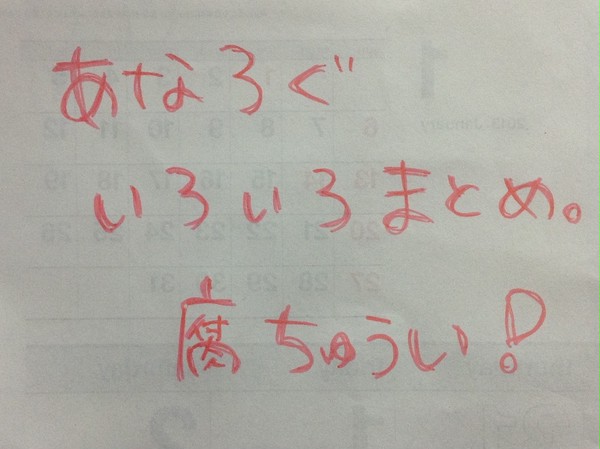 あなろぐ
いろいろまとめ。
腐ちゅうい!